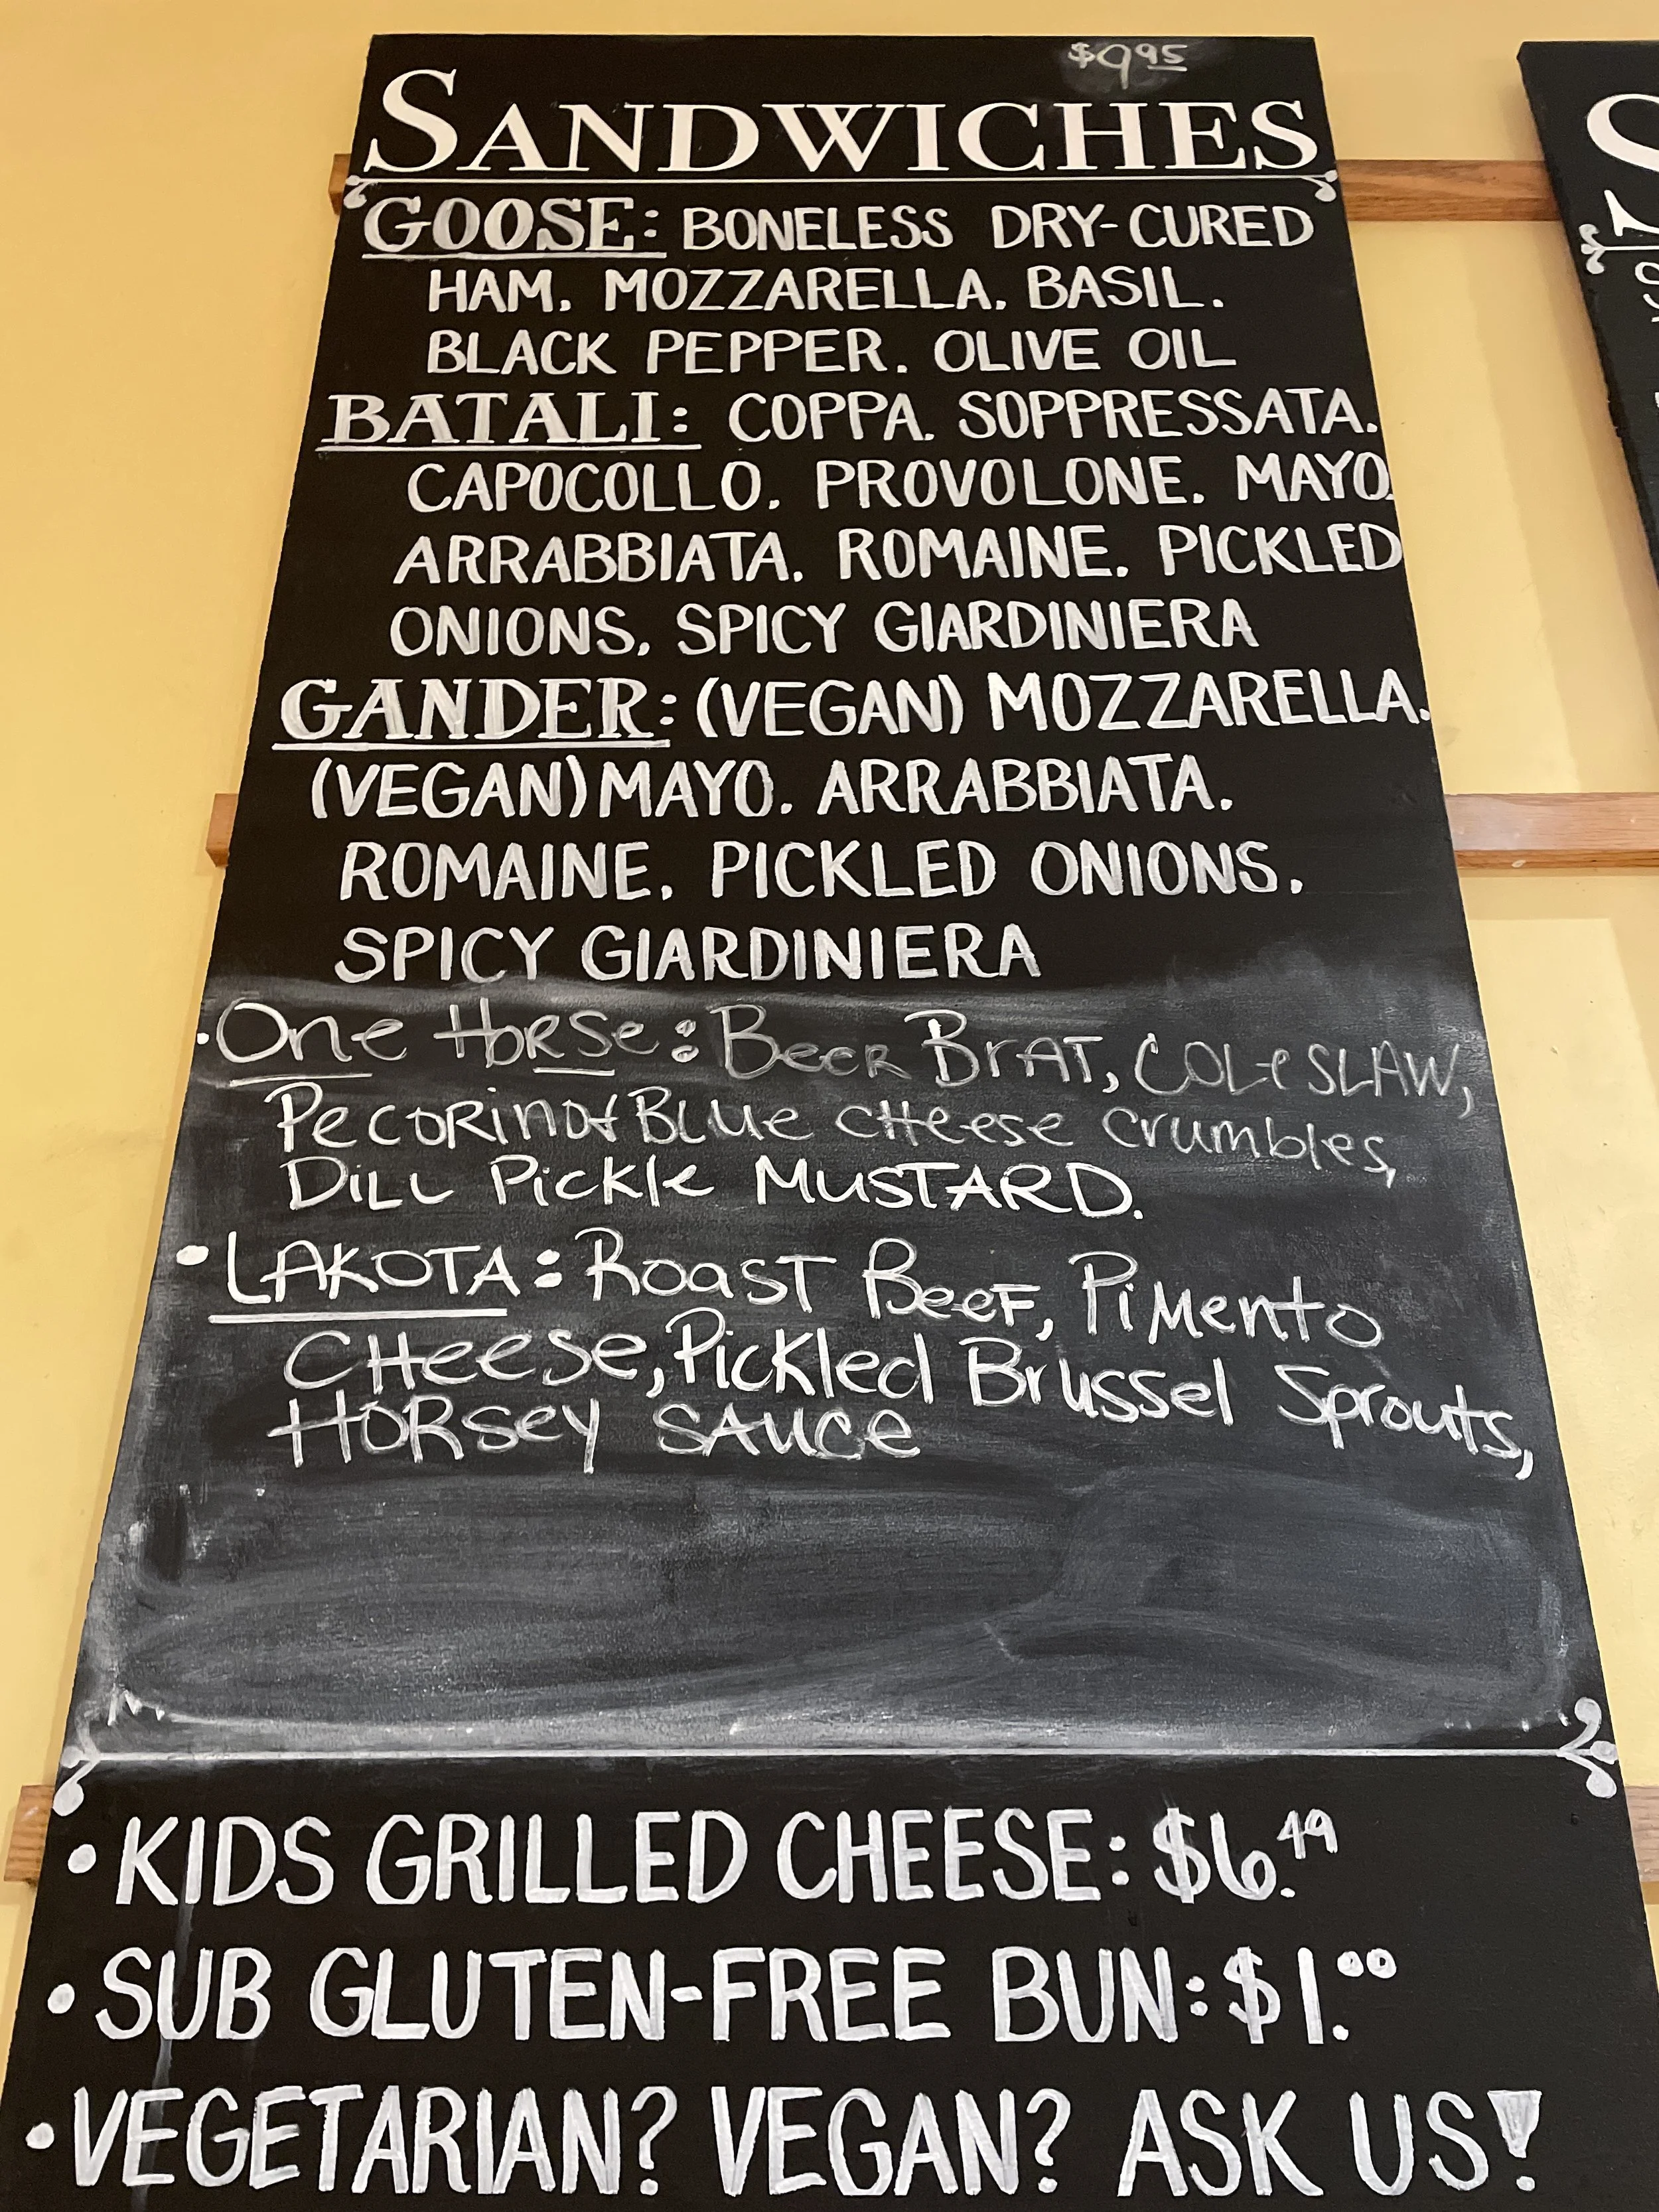 $9.95
SANDWICHES
GOOSE: BONELESS DRY-CURED
HAM. MOZZARELLA. BASIL.
BLACK PEPPER. OLIVE OIL
BATALI: COPPA. SOPPRESSATA.
CAPOCOLLO. PROVOLONE. MAYO.
ARRABBIATA. ROMAINE. PICKLED
ONIONS. SPICY GIARDINIERA
GANDER: (VEGAN) MOZZARELLA.
(VEGAN) MAYO. ARRABBIATA.
ROMAINE. PICKLED ONIONS.
SPICY GIARDINIERA
•One Horse: Beer Brat, COLeSLAW,
Pecorino & Blue Cheese Crumbles,
Dill Pickle MUSTARD.
•LAKOTA: Roast Beef, Pimento
Cheese, Pickled Brussel Sprouts,
Horsey SAUCe
•KIDS GRILLED CHEESE: $6.49
•SUB GLUTEN-FREE BUN: $1.00
•VEGETARIAN? VEGAN? ASK US!